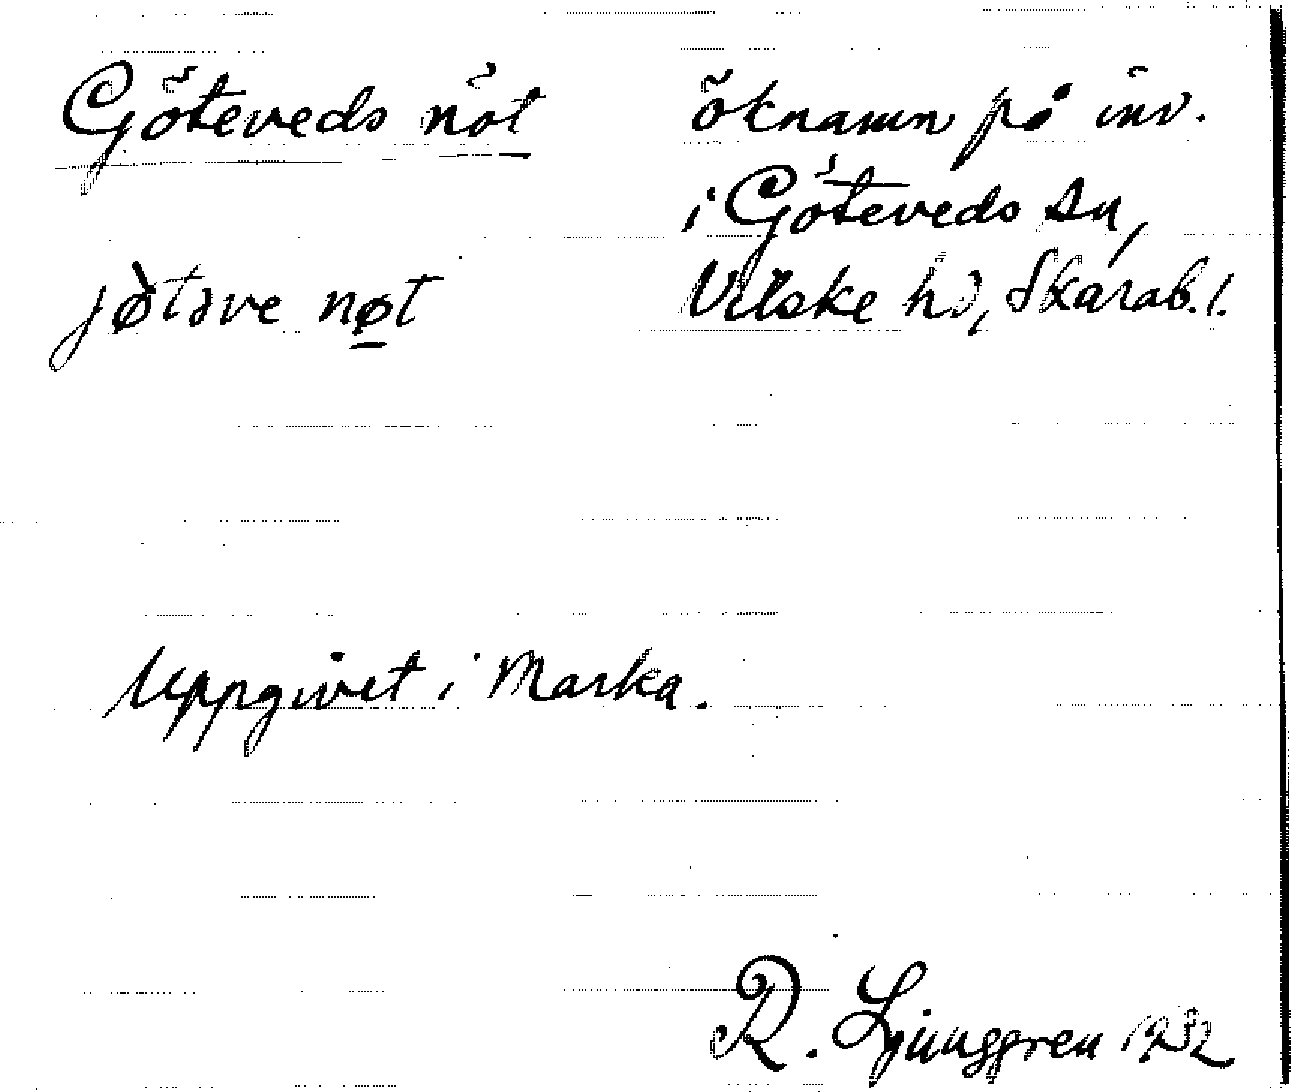 Göteveds nöt
jøtəve nøt
öknamn på inv.
i Göteveds sn,
Vilske hd, Skarab. l.
Uppgivet i Marka.
R. Ljunggren 1932